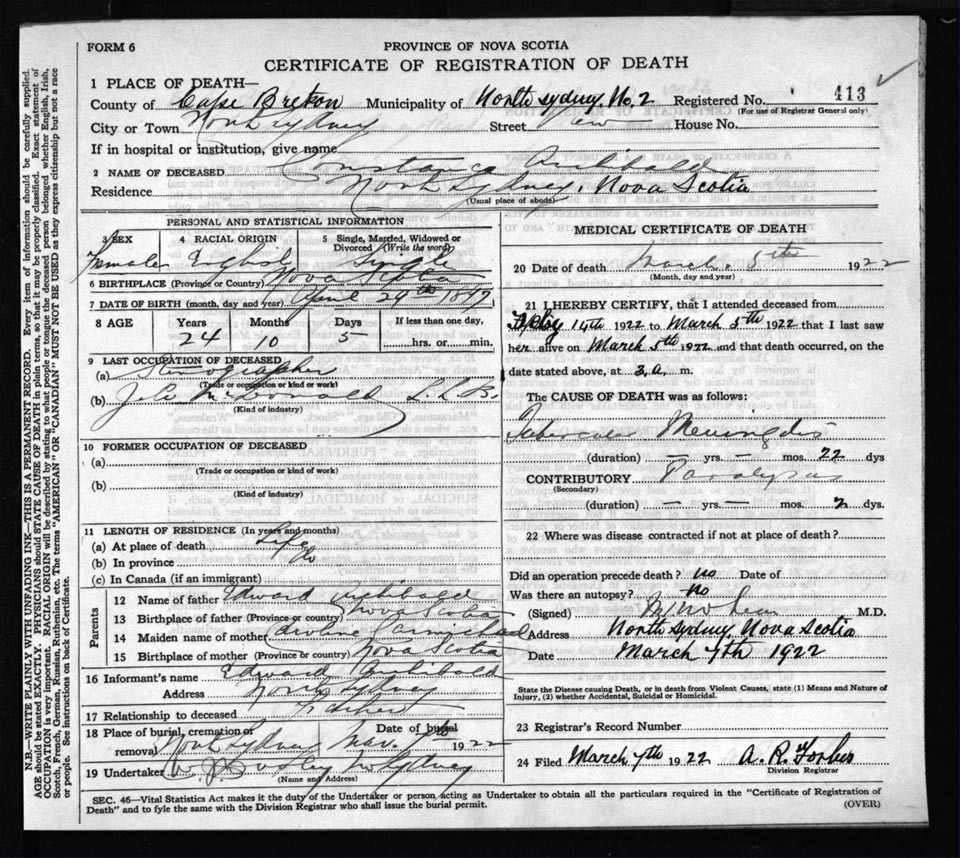 FORM 6
PROVINCE OF NOVA SCOTIA
CERTIFICATE OF REGISTRATION OF DEATH
1 PLACE OF DEATH—
County of Cape Breton Municipality of North Sydney No. 2 Registered No. 413
(For use of Registrar General only)
City or Town North Sydney Street House No.
If in hospital or institution, give name
2 NAME OF DECEASED Constance Archibald
Residence North Sydney, Nova Scotia
(Usual place of abode)
PERSONAL AND STATISTICAL INFORMATION
3 SEX 4 RACIAL ORIGIN 5 Single, Married, Widowed or Divorced (Write the word)
Female English Single
6 BIRTHPLACE (Province or Country) Nova Scotia
7 DATE OF BIRTH (month, day and year) April 29th 1897
8 AGE Years Months Days If less than one day,
24 10 5 ....hrs. or....min.
9 LAST OCCUPATION OF DECEASED
(a) Stenographer
(Trade or occupation or kind of work)
(b) McDonald L.L.B.
(Kind of industry)
10 FORMER OCCUPATION OF DECEASED
(a)
(Trade or occupation or kind of work)
(b)
(Kind of industry)
11 LENGTH OF RESIDENCE (In years and months)
(a) At place of death Life
(b) In province do
(c) In Canada (if an immigrant)
Parents
12 Name of father Edward Archibald
13 Birthplace of father (Province or country) Nova Scotia
14 Maiden name of mother Caroline
15 Birthplace of mother (Province or country) Nova Scotia
16 Informant's name Edward Archibald
Address North Sydney
17 Relationship to deceased Father
18 Place of burial, cremation or removal North Sydney Date of burial Mar. 1922
19 Undertaker N Sydney
(Name and Address)
MEDICAL CERTIFICATE OF DEATH
20 Date of death March 5th 1922
(Month, day and year)
21 I HEREBY CERTIFY, that I attended deceased from
14th 1922 to March 5th 1922 that I last saw
her alive on March 5th 1922 and that death occurred, on the
date stated above, at 3 a. m.
The CAUSE OF DEATH was as follows:
Tubercular Meningitis
(duration) — yrs. — mos. 22 dys
CONTRIBUTORY Paralysis
(Secondary)
(duration) — yrs. mos. 2 dys.
22 Where was disease contracted if not at place of death?
Did an operation precede death? no Date of
Was there an autopsy? no
(Signed) M.D.
Address North Sydney Nova Scotia
Date March 7th 1922
State the Disease causing Death, or in death from Violent Causes, state (1) Means and Nature of
Injury, (2) whether Accidental, Suicidal or Homicidal.
23 Registrar's Record Number
24 Filed March 7th 1922 A. R. Forbes
Division Registrar
SEC. 46—Vital Statistics Act makes it the duty of the Undertaker or person acting as Undertaker to obtain all the particulars required in the "Certificate of Registration of
Death" and to fyle the same with the Division Registrar who shall issue the burial permit.
(OVER)
N.B.—WRITE PLAINLY WITH UNFADING INK—THIS IS A PERMANENT RECORD. Every item of information should be carefully supplied.
AGE should be stated EXACTLY. PHYSICIANS should STATE CAUSE OF DEATH in plain terms, so that it may be properly classified. Exact statement of
OCCUPATION is very important. RACIAL ORIGIN will be described by stating to what people or tongue the deceased person belonged, whether English, Irish,
Scotch, French, German, Russian, Ruthenian, etc. The terms "AMERICAN" OR "CANADIAN" MUST NOT BE USED as they express citizenship but not a race
or people. See instructions on back of Certificate.